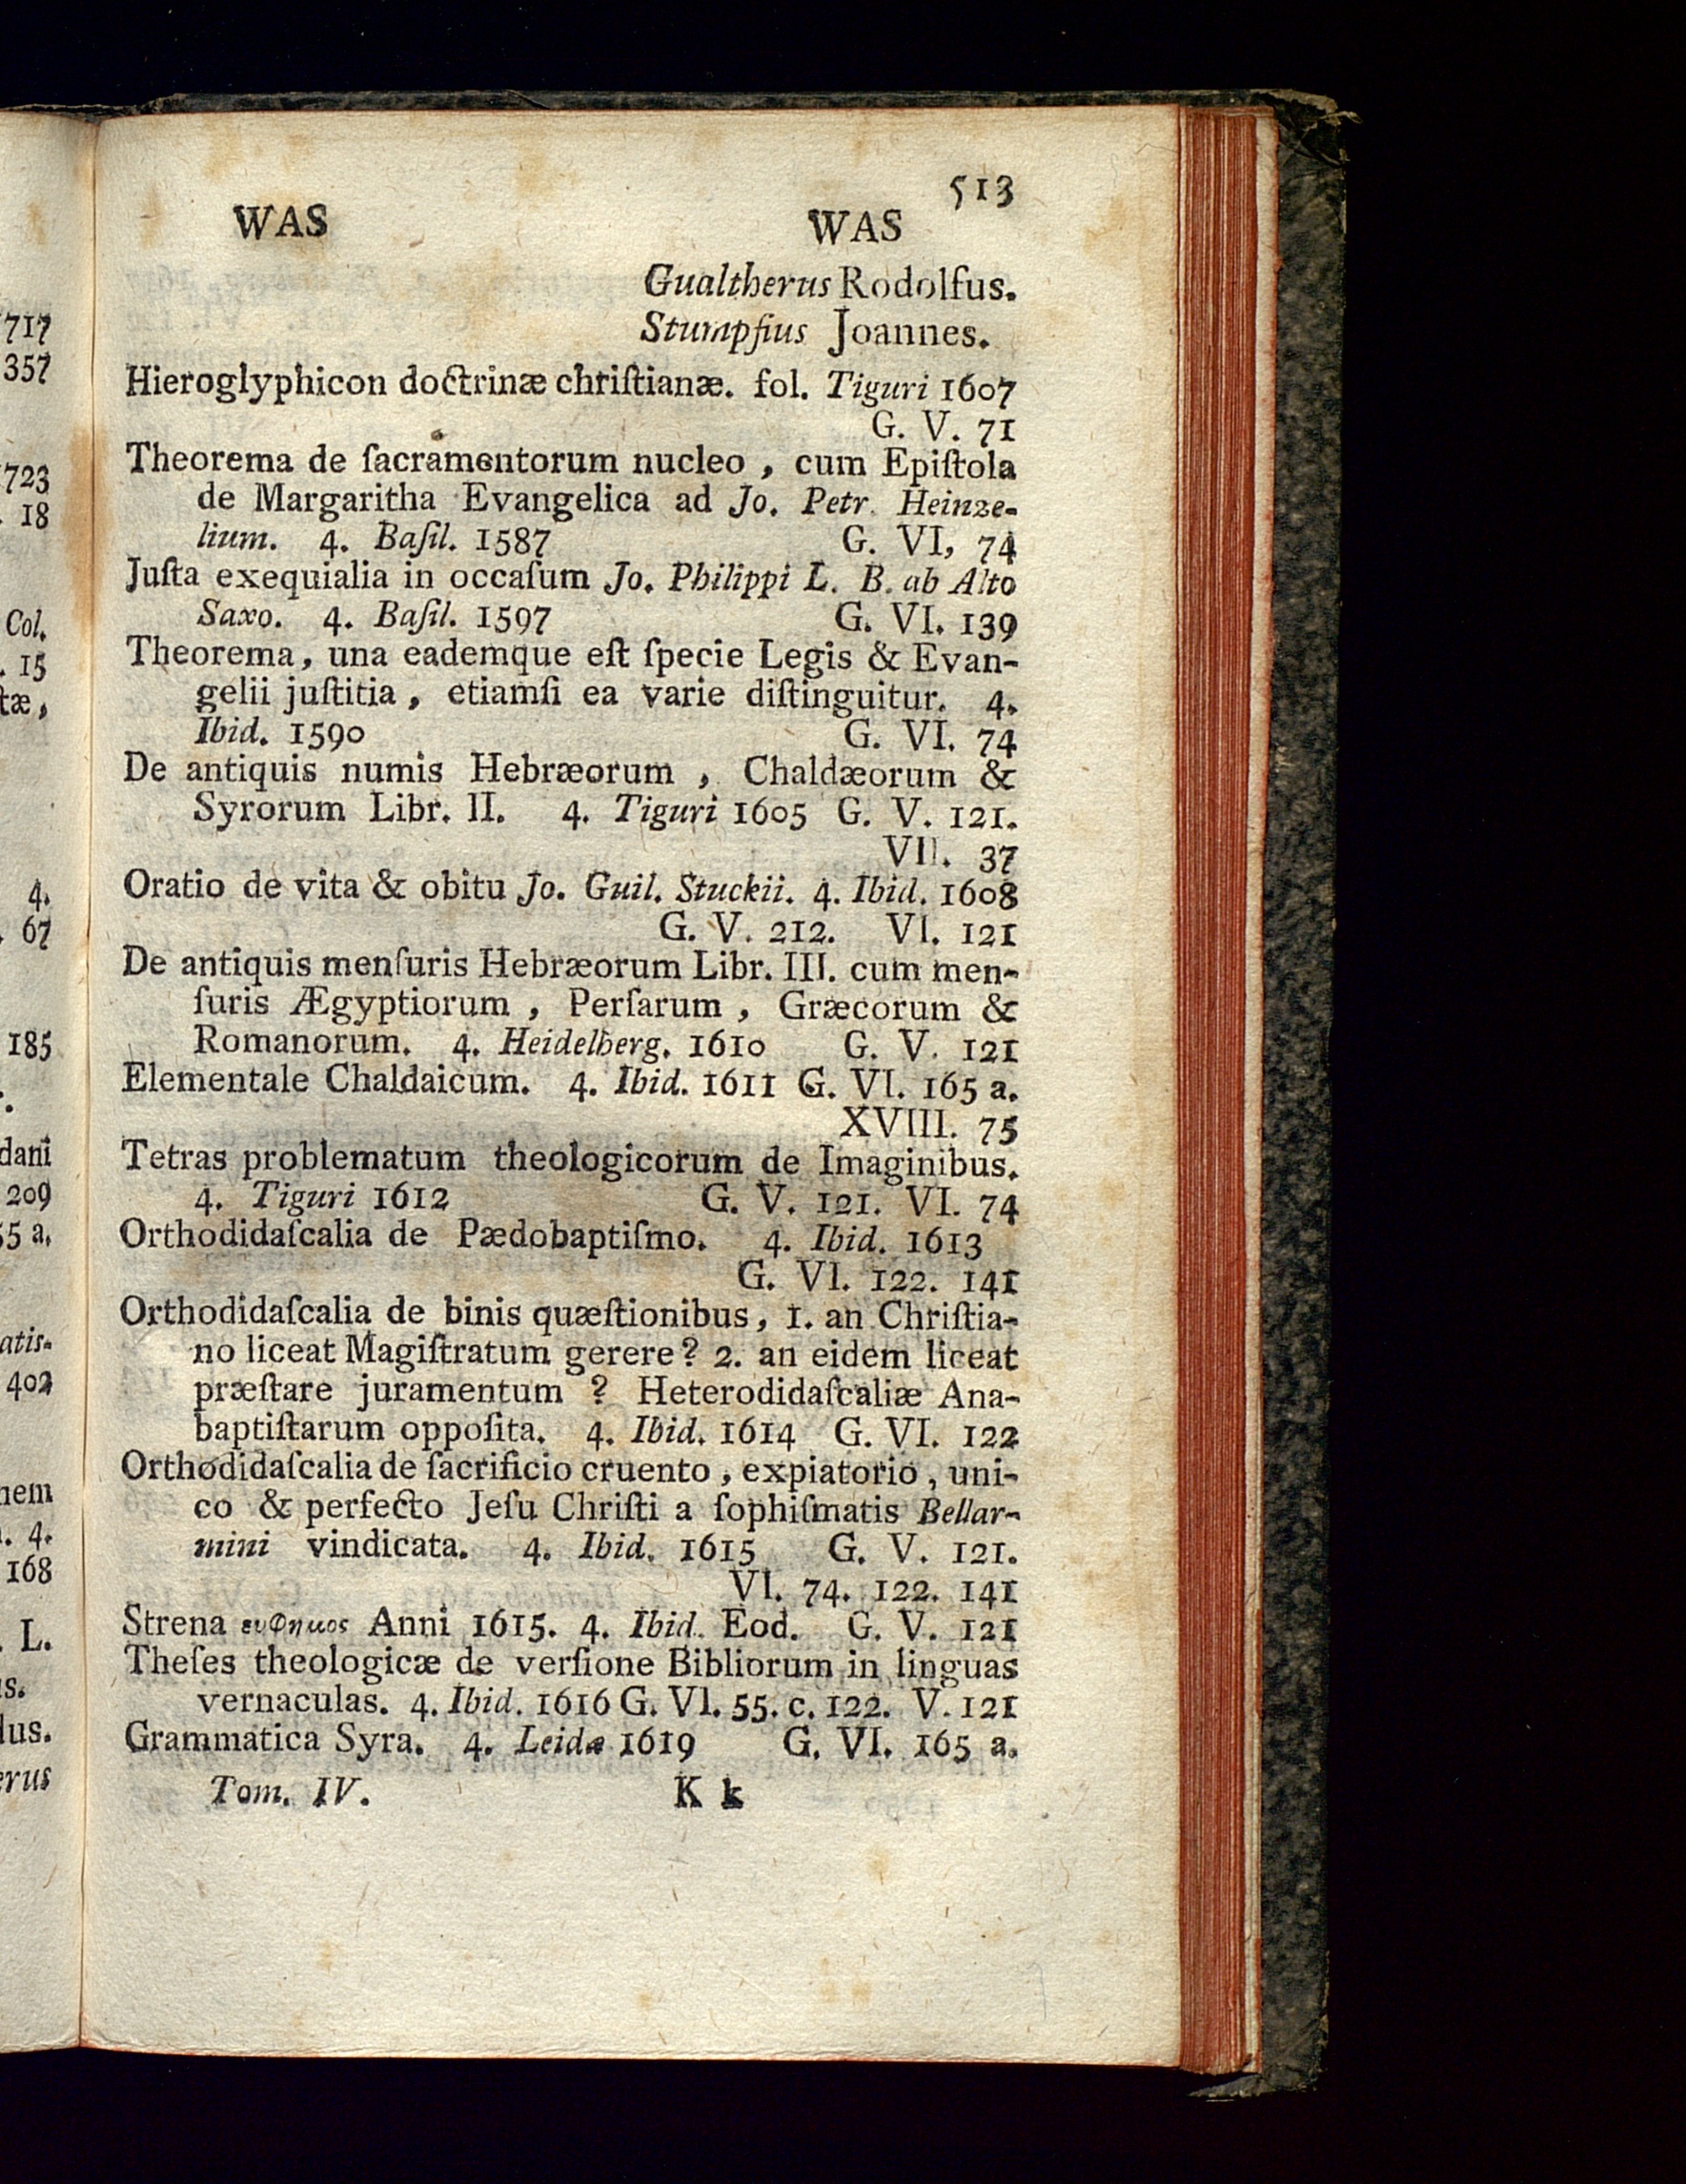 513
WAS WAS
Gualtherus Rodolfus.
Stumpfius Joannes.
Hieroglyphicon doctrinæ chriſtianæ. fol. Tiguri 1607
G. V. 71
Theorema de ſacramentorum nucleo, cum Epiſtola
de Margaritha Evangelica ad Jo. Petr. Heinze-
lium. 4. Baſil. 1587 G. VI, 74
Juſta exequialia in occaſum Jo. Philippi L. B. ab Alto
Saxo. 4. Baſil. 1597 G. VI. 139
Theorema, una eademque eſt ſpecie Legis & Evan-
gelii juſtitia, etiamſi ea varie diſtinguitur. 4.
Ibid. 1590 G. VI. 74
De antiquis numis Hebræorum, Chaldæorum &
Syrorum Libr. II. 4. Tiguri 1605 G. V. 121.
VII. 37
Oratio de vita & obitu Jo. Guil. Stuckii. 4. Ibid. 1608
G. V. 212. VI. 121
De antiquis menſuris Hebræorum Libr. III. cum men-
ſuris Ægyptiorum, Perſarum, Græcorum &
Romanorum. 4. Heidelberg. 1610 G. V. 121
Elementale Chaldaicum. 4. Ibid. 1611 G. VI. 165 a.
XVIII. 75
Tetras problematum theologicorum de Imaginibus.
4. Tiguri 1612 G. V. 121. VI. 74
Orthodidaſcalia de Pædobaptiſmo. 4. Ibid. 1613
G. VI. 122. 141
Orthodidaſcalia de binis quæſtionibus, 1. an Chriſtia-
no liceat Magiſtratum gerere? 2. an eidem liceat
præſtare juramentum? Heterodidaſcaliæ Ana-
baptiſtarum oppoſita. 4. Ibid. 1614 G. VI. 122
Orthodidaſcalia de ſacrificio cruento, expiatorio, uni-
co & perfecto Jeſu Chriſti a ſophiſmatis Bellar-
mini vindicata. 4. Ibid. 1615 G. V. 121.
VI. 74. 122. 141
Strena ευφημος Anni 1615. 4. Ibid. Eod. G. V. 121
Theſes theologicæ de verſione Bibliorum in linguas
vernaculas. 4. Ibid. 1616 G. VI. 55. c. 122. V. 121
Grammatica Syra. 4. Leidæ 1619 G. VI. 165 a.
Tom. IV. K k
717
357
723
18
Col.
. 15
tæ,
4.
. 67
185
dani
209
5 a.
atis-
402
nem
. 4.
168
. L.
s.
lus.
erus